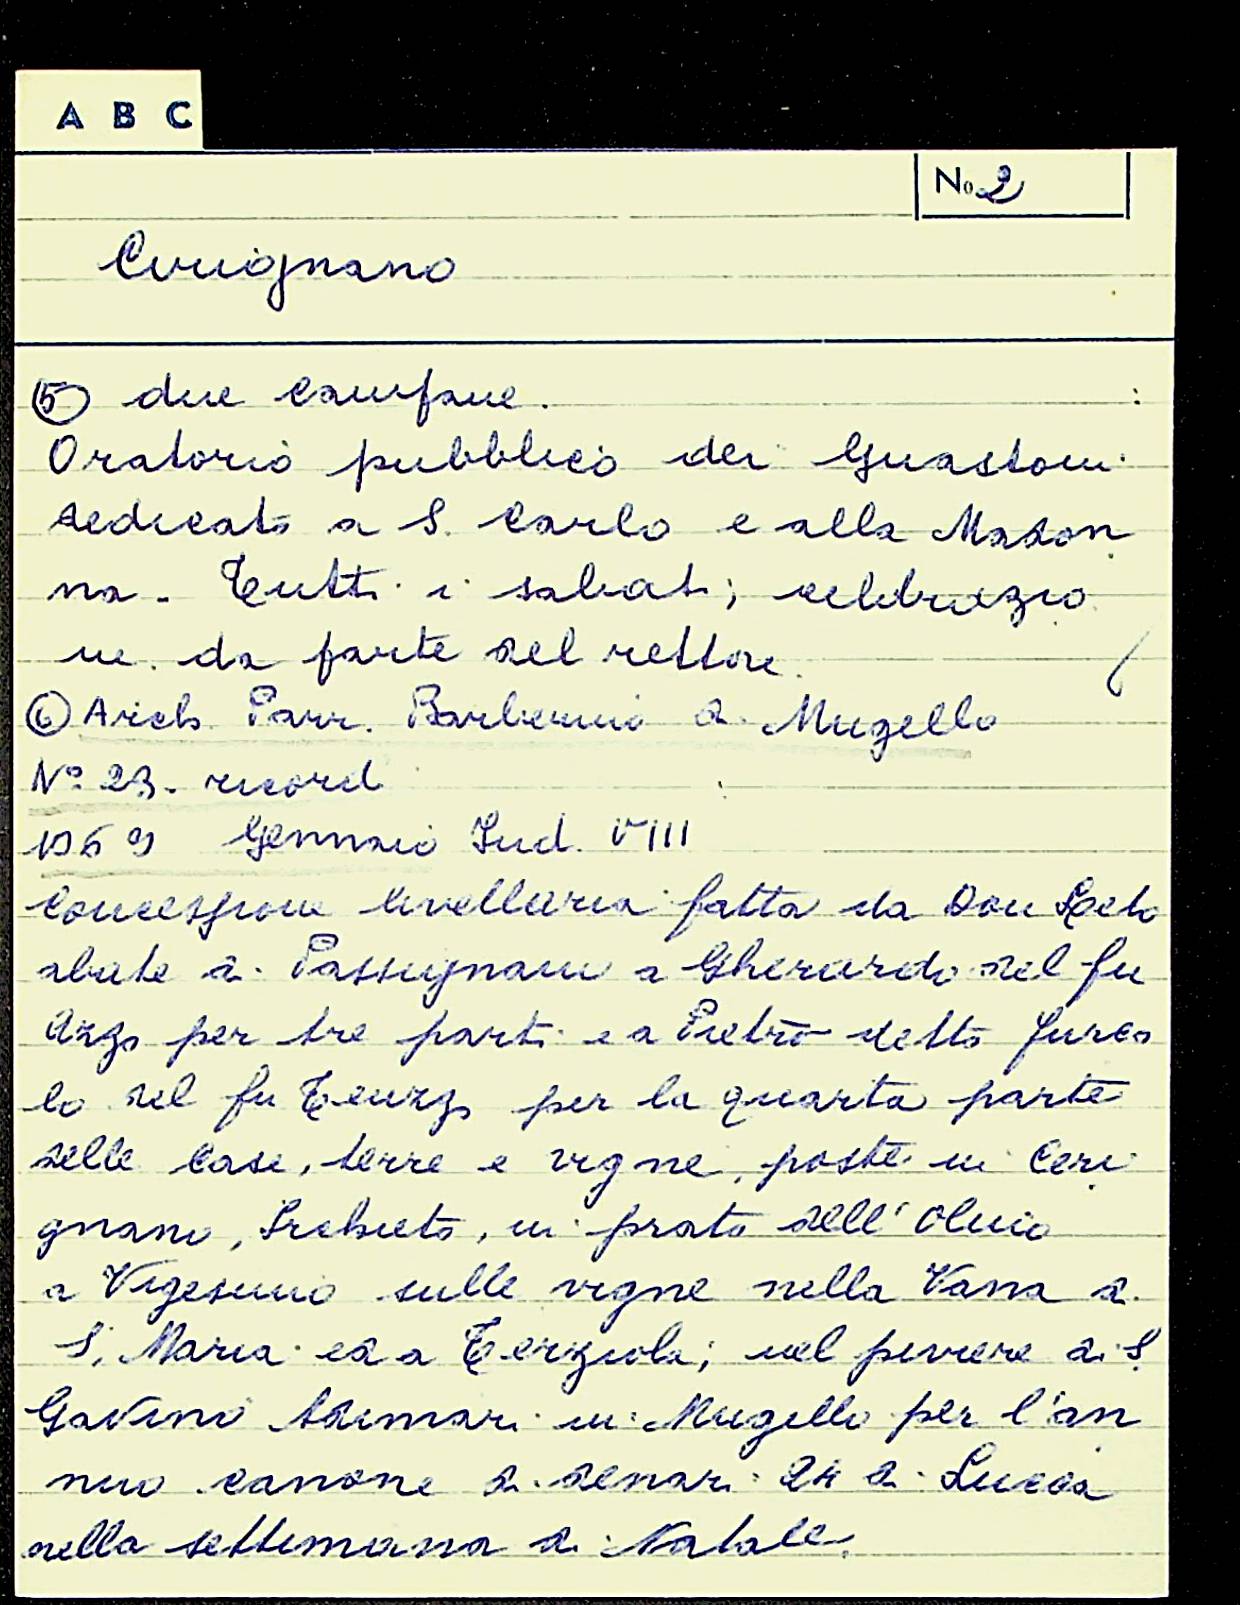 A B C
No 2
Cirignano
5 due campane.
Oratorio pubblico dei Guastoni
dedicato a S. Carlo e alla Madon
na. Tutti i sabati; celebrazio
ne da parte del rettore.
6 Arch. Parr. Barberino di Mugello
Nº 23. ricord
Gennaio Ind. VIII
Concessione livellaria fatta da Don
abate di Passignano a Gherardo del fu
Azzo per tre parti e a Pietro detto Furco
lo del fu Teuzzo per la quarta parte
delle case, terre e vigne, poste in Ceri
gnano, in prato dell'
a Vigesimo sulle vigne nella Vana di
S. Maria ed a Terziola; nel piviere di S.
Gavino Adimari in Mugello per l'an
nuo canone di denari 24 di Lucca
nella settimana di Natale.